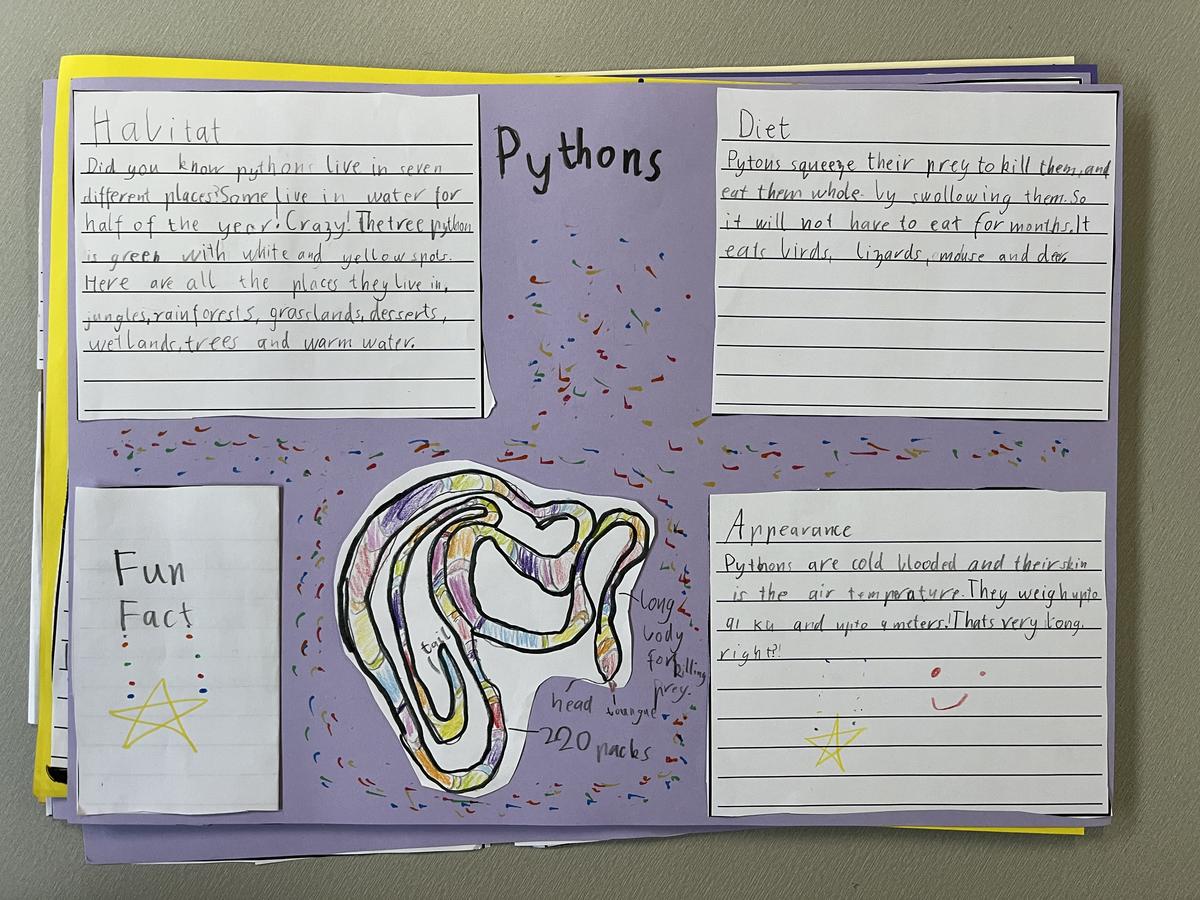 Pythons
Habitat
Did you know pythons live in seven
different places? Some live in water for
half of the year! Crazy! The tree python
is green with white and yellow spots.
Here are all the places they live in,
jungles, rainforests, grasslands, desserts,
wetlands, trees and warm water.
Diet
Pytons squeeze their prey to kill them, and
eat them whole by swollowing them. So
it will not have to eat for months. It
eats birds, lizards, mouse and deer.
Fun
Fact
tail
long
body
for killing
prey.
head
toungue
220 packs
Appearance
Pythons are cold blooded and their skin
is the air temprature. They weigh upto
91 and upto 9 meters! Thats very long,
right?!